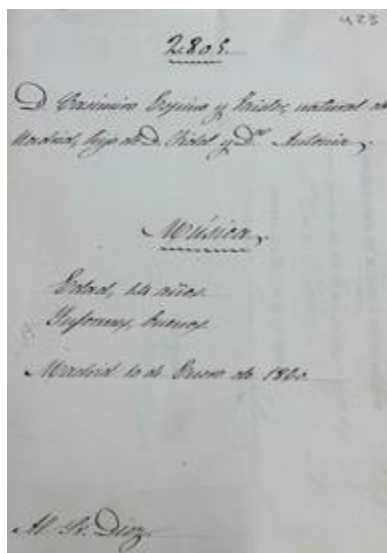 423
2.805.
D. Casimiro Espino y natural de
Madrid, hijo de D. Fidel y D.ª Antonia,
Música,
Edad, 14 años.
Informes, buenos.
Madrid 10 de Enero de 1860.
Al Sr. Diez.